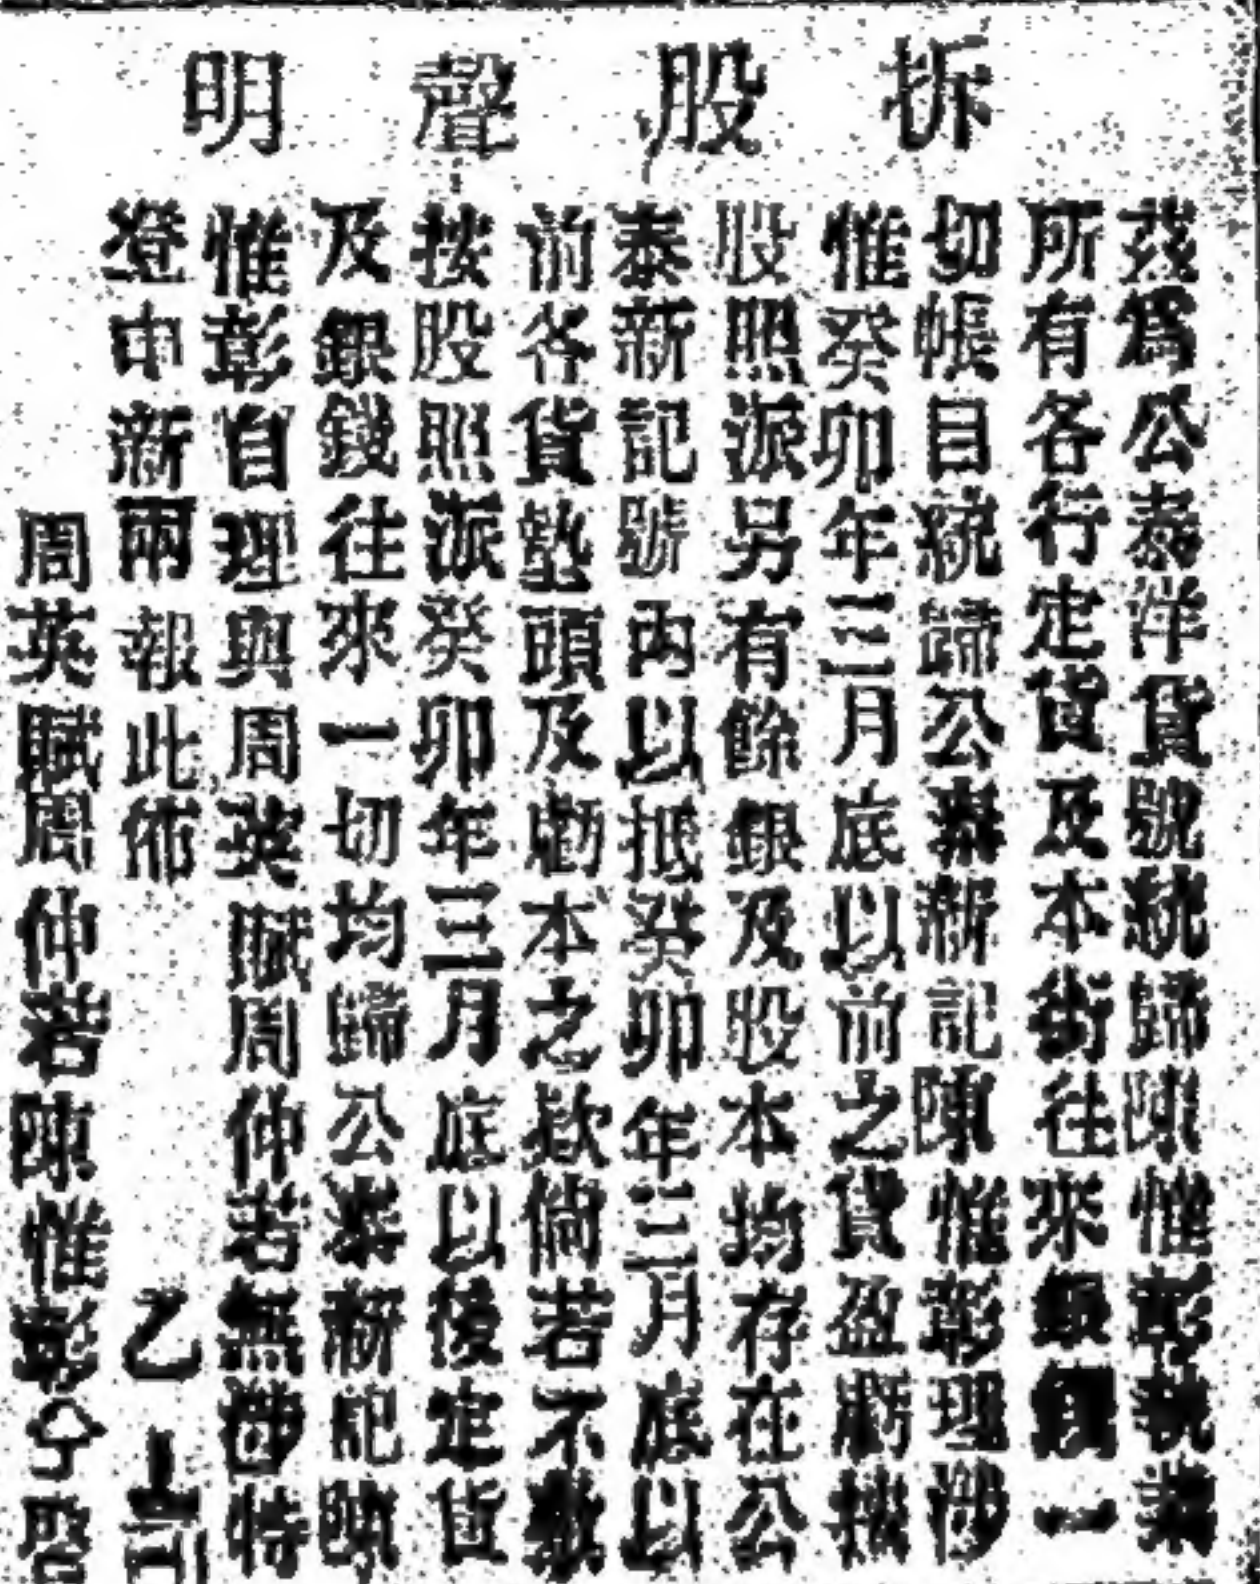 拆股聲明
茲爲公泰洋貨號統歸陳惟彰執業
所有各行定貨及本街往來銀錢一
切帳目統歸公泰新記陳惟彰理涉
惟癸卯年三月底以前之貨盈虧按
股照派另有餘銀及股本均存在公
泰新記號內以抵癸卯年三月底以
前各貨墊頭及虧本之欵倘若不敷
按股照派癸卯年三月底以後定貨
及銀錢往來一切均歸公泰新記陳
惟彰自理與周英賦周仲若無涉特
登中新兩報此佈
周英賦周仲若陳惟彰仝啓